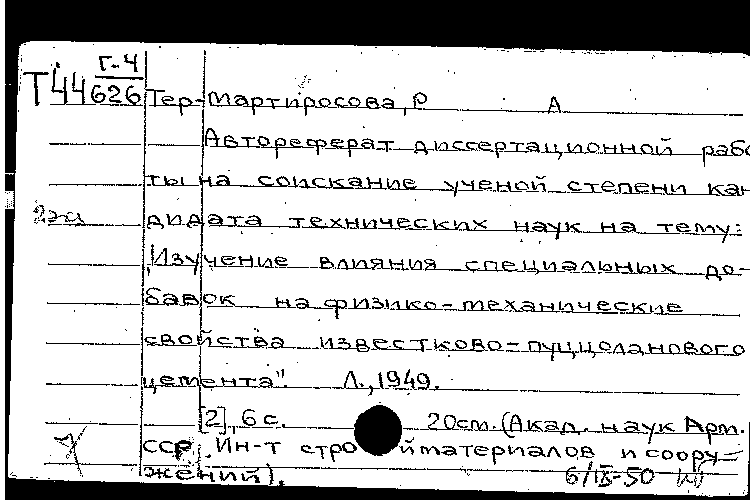 Г-4
Т44626 Тер-Мартиросова, Р А
Автореферат диссертационной рабо
ты на соискание ученой степени кан
2 экз дидата технических наук на тему:
„Изучение влияния специальных до-
бавок на физико-механические
свойства известково-пуццоланового
цемента". Л., 1949.
[2], 6 с. 20см. (Акад. наук Арм.
ССР. Ин-т стро йматериалов и соору-
жений).
6/IX-50